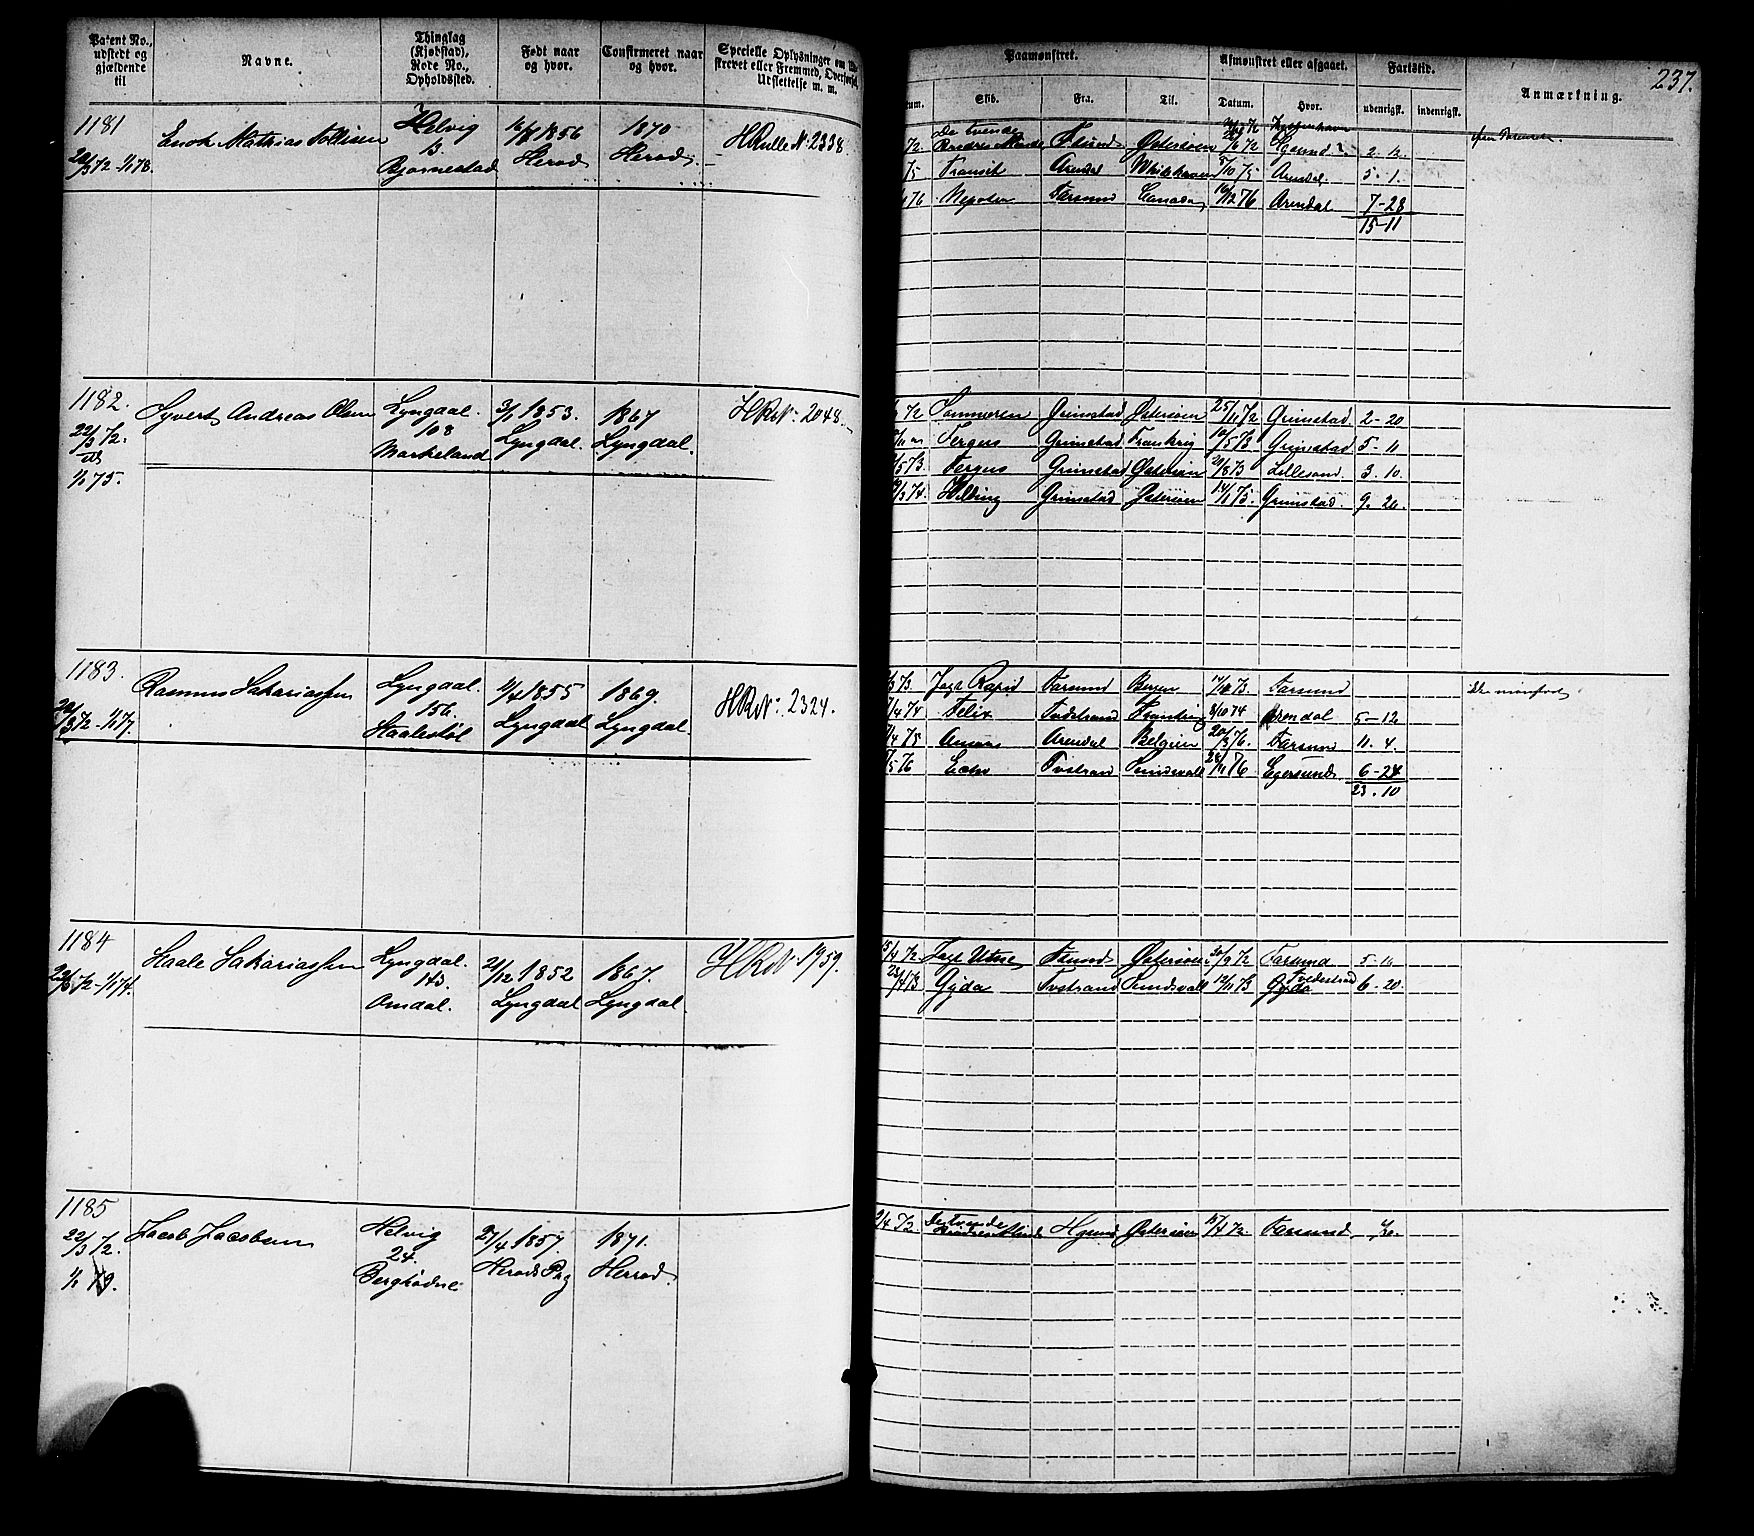 Patent No., udstedt og gjældende til
Navne.
Thinglag (Kjøbstad), Rode No., Opholdssted.
Født naar og hvor.
Confirmeret naar og hvor.
Specielle Oplysninger om
strevet eller Fremmed, Overførsel,
Udslettelse m. m.
1181
22/3 72 - 1/1 78.
Enok Mathias Tollisen
Helvig
13
Bjørnestad
16/8 1856
Herod
1870
Herod
HRulle N: 2338.
1182.
22/3 72.
til
1/1 75.
Syvert Andreas Olsen
Lyngdal.
108
Markeland
3/1 1853.
Lyngdal.
1867
Lyngdal.
HRN: 2048.
1183.
22/3 72 - 1/1 77.
Rasmus Sakariassen
Lyngdal.
156.
Haalestøl
11/4 1855
Lyngdal
1869
Lyngdal.
HRN: 2324.
1184
22/3 72 - 1/1 74.
Haale Sakariassen
Lyngdal.
143.
Omdal.
21/12 1852
Lyngdal
1867.
Lyngdal.
HRN: 1959.
1185
22/3 72.
1/1 79.
Jacob Jacobsen
Helvig
24.
Bergkødne
27/4 1857.
Herods Prg
1871.
Herrod.
237.
Paamønstret.
Afmønstret eller afgaaet.
Fartstid.
Anmærkning.
tum.
Skib.
Fra.
Til.
Datum.
Hvor.
udenrigsk.
indenrigsk.
De tvende
72 Brødres Minde Flsund Østersøen
2-12.
75 Transit Arendal Whitehaven 5/10 75 Arendal. 5-1.
76 Neposen Farsund Canada 16/12 76 Arendal 7-28
15-11
72 Sommeren Grimstad Østersøen 25/11 72 Grimstad 2-20
Fergus Grimstad Frankrig 10/5 73 Grimstad 5-11
5 73. Fergus Grimstad Østersøen 21/8 73 Lillesand 3.10.
3 74. Hilding Grimstad Østersøen 14/1 75. Grimstad. 9.20.
73. Jagt Rapid Farsund Bergen 73. Farsund
4 74 Felix Tvedestrand Frankrig 8/10 74 Arendal 5-12
4 75 Arendal Belgien 20/3 76. Farsund 11.4.
5 76 Echo Tvstrand Sundsvall 28/11 76 Egersund 6-24
23.10
15/4 72 Jagt Farsund Østersøen 30/9 72 Farsund 5-
23/4 73 Gyda Tvstrand Sundsvall 12/11 73 Tvedestrand 6-20.
2/4 72. De Tvende
Brødres Minde Flsund Østersøen 72. Farsund